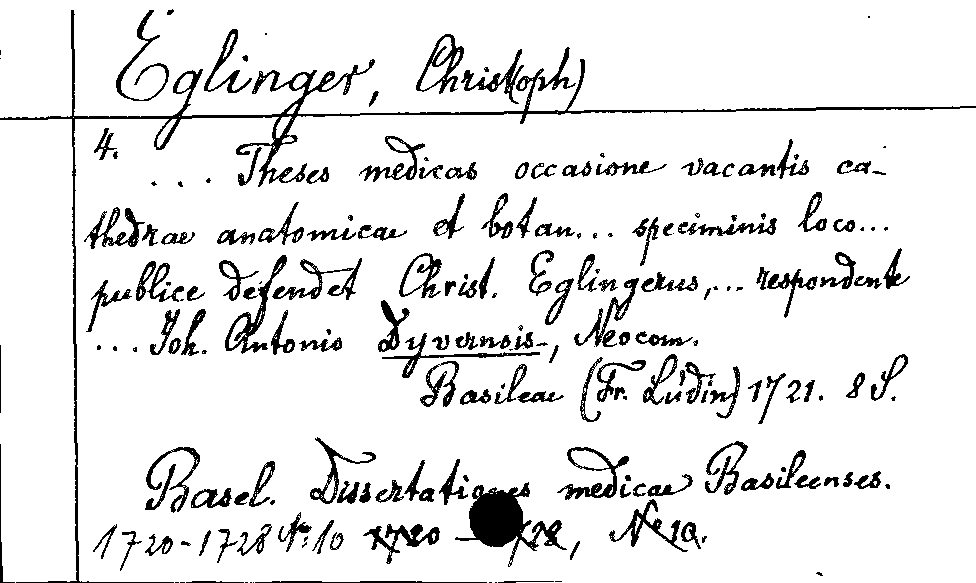 Eglinger, Christ(oph)
4.
... Theses medicas occasione vacantis ca-
thedrae anatomicae et botan... speciminis loco...
publice defendet Christ. Eglingerus,... respondente
... Joh. Antonio Dyvernois, Neocom.
Basileae (Fr. Lüdin) 1721. 8 S.
Basel. Dissertationes medicae Basileenses.
1720-1728 Nr. 10 1720 - 1728, Nr 10.